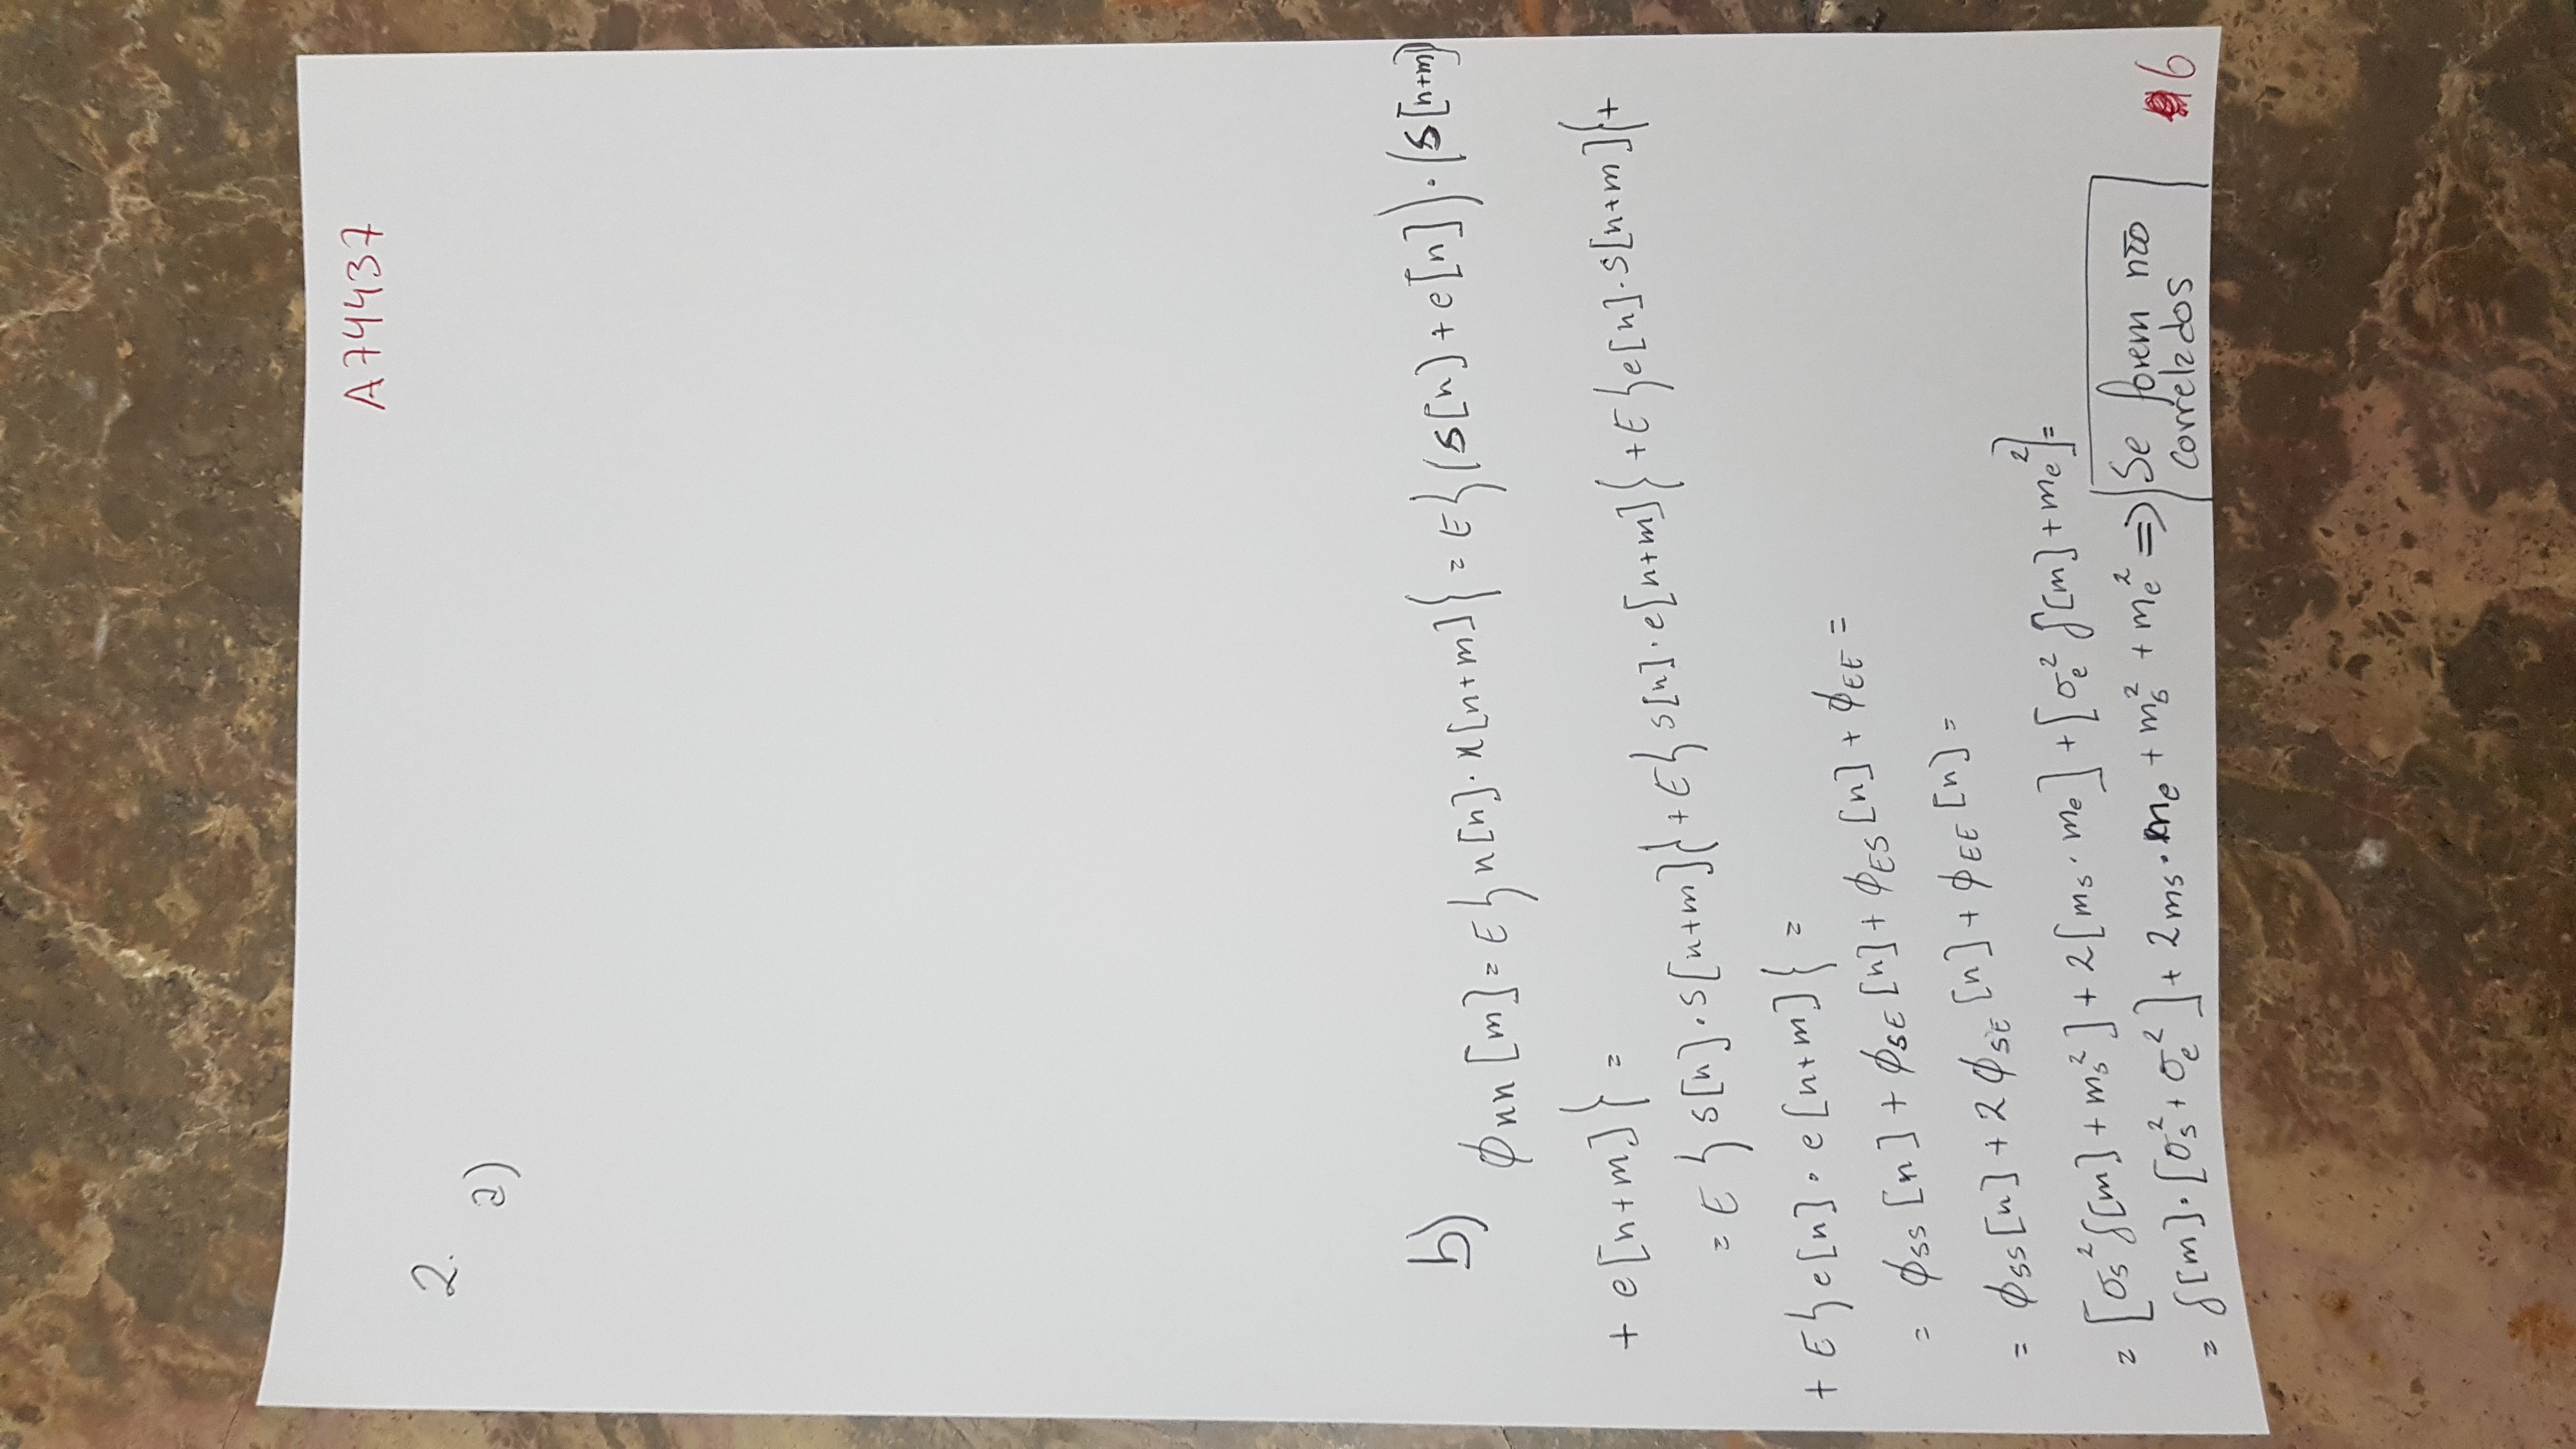 A74437
2.
a)
b)
ϕxx[m] = E{x[n]·x[n+m]} = E{(s[n]+e[n])·(s[n+m]
+ e[n+m]} =
= E{s[n]·s[n+m]} + E{s[n]·e[n+m]} + E{e[n]·s[n+m]} +
+ E{e[n]·e[n+m]} =
= ϕSS[n] + ϕSE[n] + ϕES[n] + ϕEE =
= ϕSS[n] + 2ϕSE[n] + ϕEE[n] =
= [σs²δ[m] + ms²] + 2[ms·me] + [σe²δ[m] + me²] =
= δ[m]·[σs² + σe²] + 2ms·me + ms² + me² ⇒ Se forem não
correlados
6